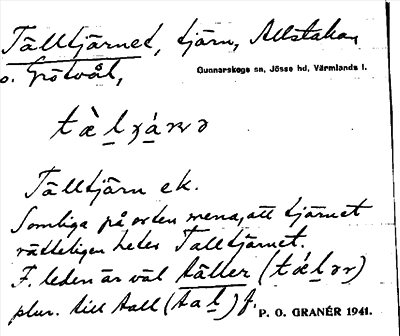 Tälltjärnet, tjärn, Allstakan
o. Grötvål,
Gunnarskogs sn, Jösse hd, Värmlands l.
Tälltjärn ek.
Somliga på orten mena, att tjärnet
rätteligen heter Talltjärnet.
F. leden är väl täller
plur. till tall
P. O. GRANÉR 1941.